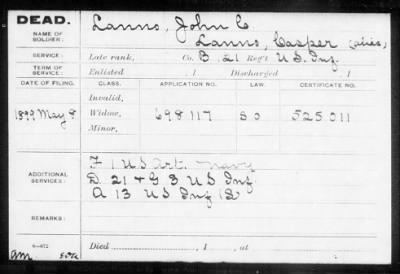 DEAD.
NAME OF SOLDIER: Lanno, John C
Lanno, Casper (alias)
SERVICE: Late rank, Co. B. 21 Reg't U.S. Inf.
TERM OF SERVICE: Enlisted , 1 Discharged , 1
DATE OF FILING. CLASS. APPLICATION NO. LAW. CERTIFICATE NO.
Invalid,
1899 May 8 Widow, 698117 525011
Minor,
ADDITIONAL SERVICES: F 1 U S Art. Navy
D. 21 & G 3 U S Inf.
A 13 U S Inf
REMARKS:
Died , 1 , at